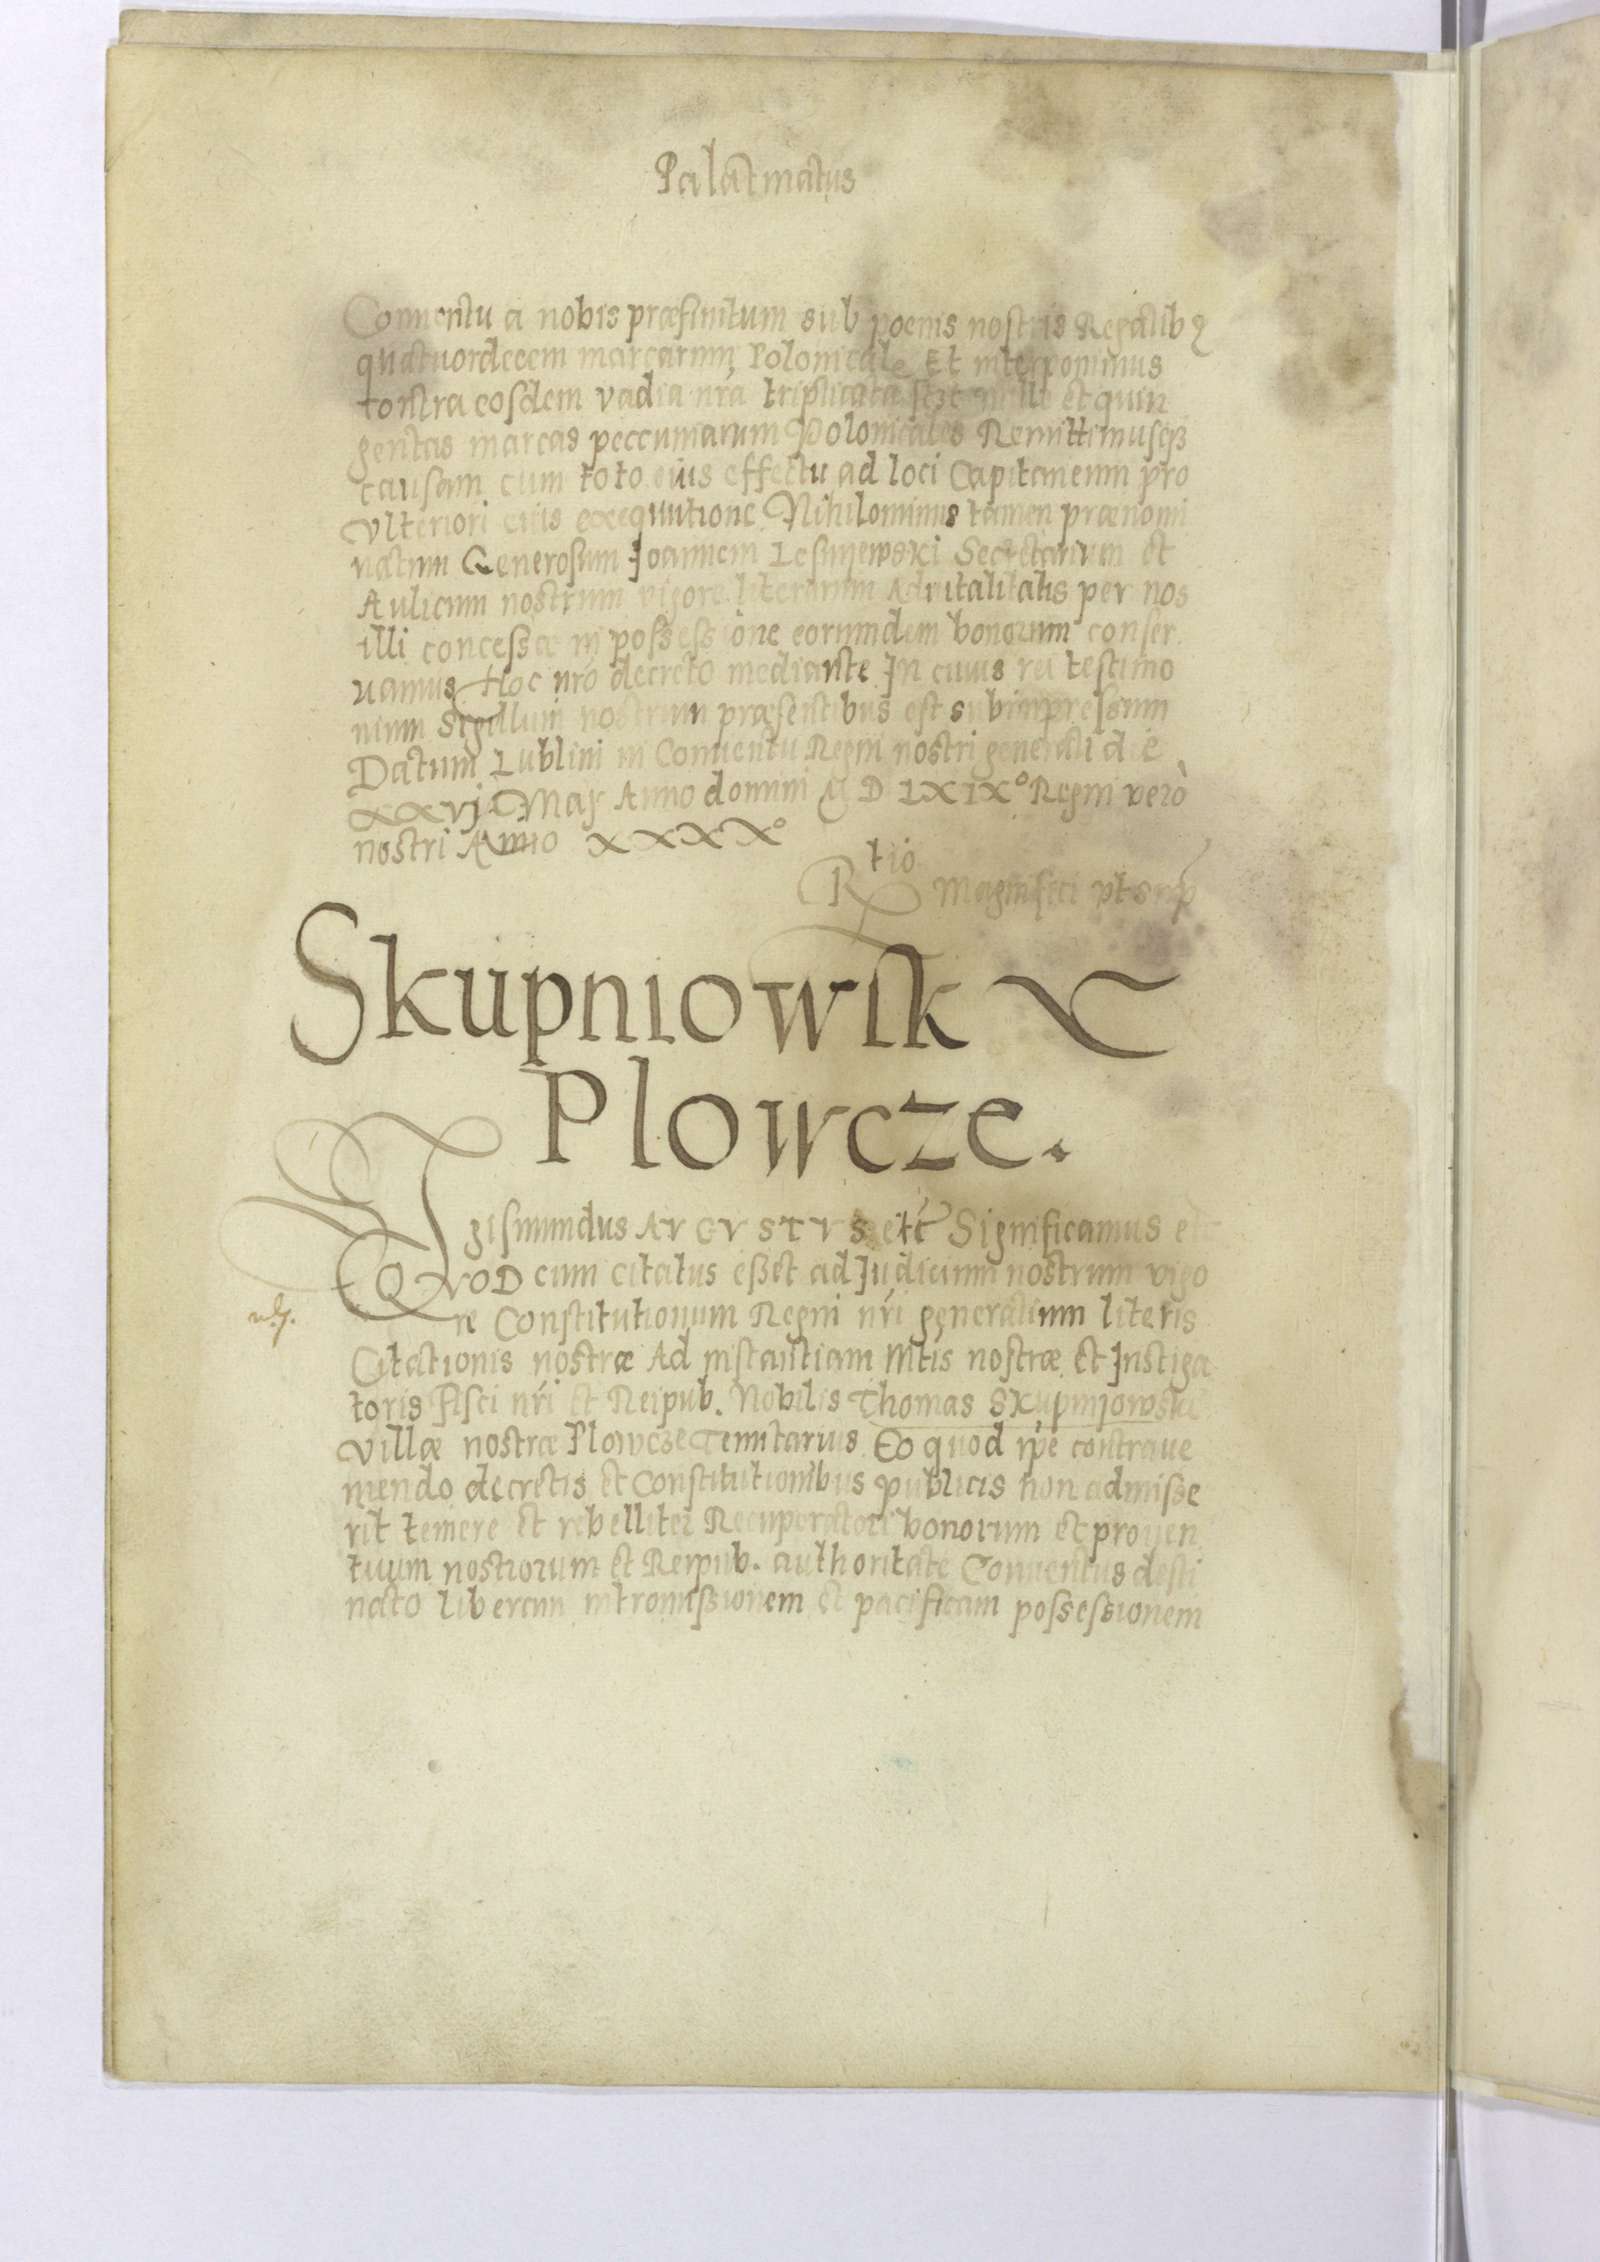 Palatinatus
Conuentu a nobis præfinitum sub poenis nostris Regalibꝫ
quatuordecem marcarum Polonicale Et interponimus
contra eosdem vadia nrá triplicata mille et quin
gentas marcas peccuniarum Polonicales Remittimusqꝫ
causam cum toto eius effectu ad loci Capitaneum pro
vlteriori eius exequutione Nihilominus tamen prænomi
natum Generosum Joannem Lesniewski Secretarium et
Aulicum nostrum vigore literarum Aduitalitatis per nos
illi concessæ in possessione eorumdem bonorum conser
uamus Hoc nró decreto mediante In cuius rei testimo
nium Sigillum nostrum præsentibus est subimpressum
Datum Lublini in Conuentu Regni nostri generali die
xxvj May Anno domini M D LXIXº Regni verò
nostri Anno XXXXº
Rtio Magnifici vt sup
Skupniowsk
Plowcze.
Sigismundus AVGVSTVS etć Significamus et
QVOD cum citatus esset ad Judicium nostrum vigo
re Constitutionum Regni nŕi generalium literis
Citationis nostræ Ad instantiam Mtis nostræ et Instiga
toris fisci nŕi et Reipub. Nobilis Thomas Skupnjowski
villæ nostræ Plowcze Tenutarius Eo quod ipe contraue
niendo decretis et Constitutionibus publicis non admisse
rit temere et rebelliter Recuperatori bonorum et prouen
tuum nostrorum et Reipub. authoritate Conuentus desti
nato liberam intromissionem et pacificam possessionem